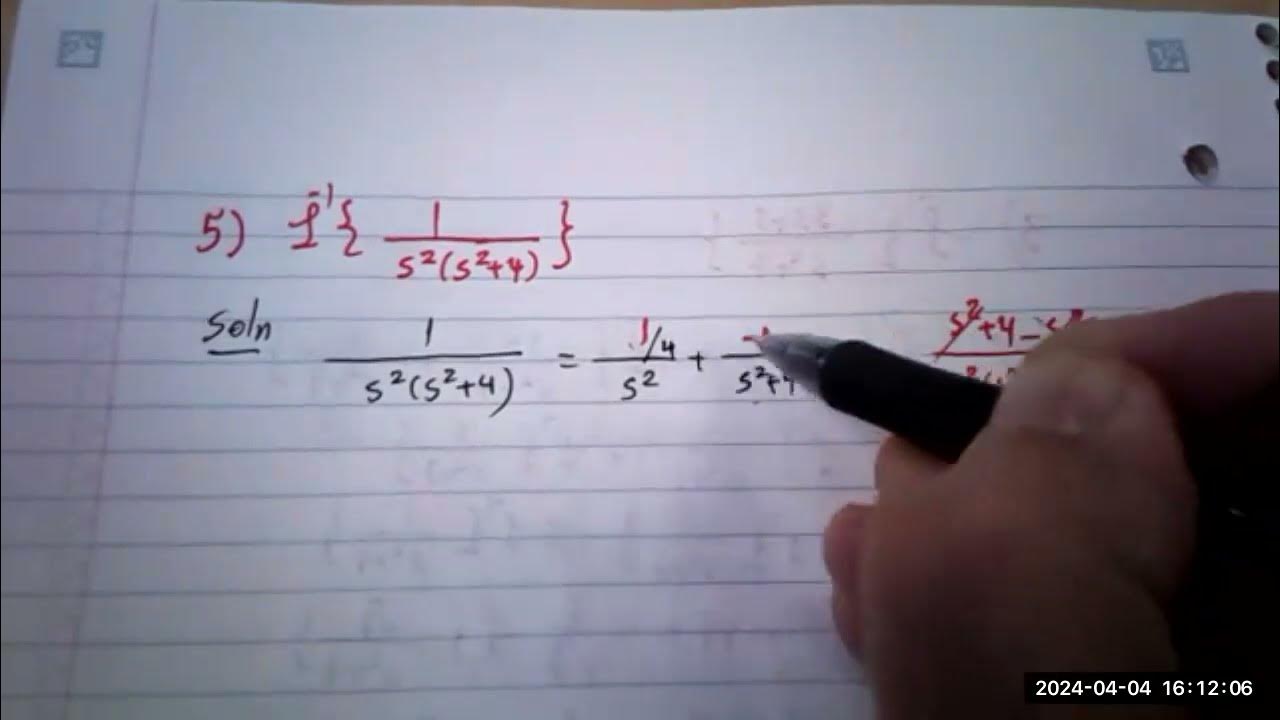 5) ℒ⁻¹{ 1/(s²(s²+4)) }
Soln 1/(s²(s²+4)) = (1/4)/s² + -1/(s²+4) s²+4-s²
2024-04-04 16:12:06